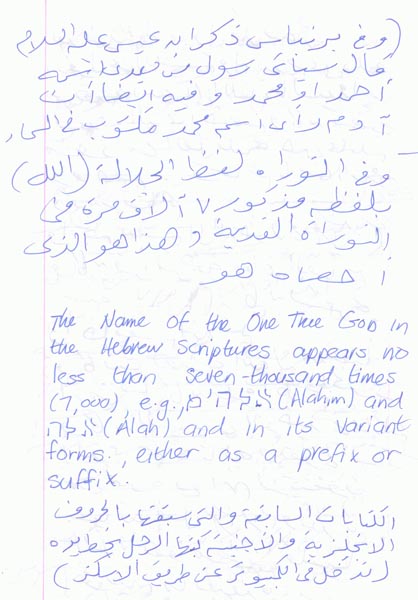 (وفي برنباس ذكر أنه عيسى عليه السلام
قال سيأتي رسول من بعدي اسمه
أحمد أو محمد وفيه ايضا أن
آدم رأى اسم محمد مكتوب في
وفي التوراه لفظ الجلالة (الله)
بلفظه مذكور ٧ آلاف مرة في
التوراة القديمة وهذا هو الذي
أحصاه هو
The Name of the One True God in
the Hebrew Scriptures appears no
less than seven-thousand times
(7,000), e.g., אלהים (Alahim) and
אלה (Alah) and in its variant
forms, either as a prefix or
suffix.
الكتابات السابقة والتي سبقتها بالحروف
الانجليزية والأجنبية كتبها الرجل بخط يده
(تدخل في الكمبيوتر عن طريق الاسكنر)